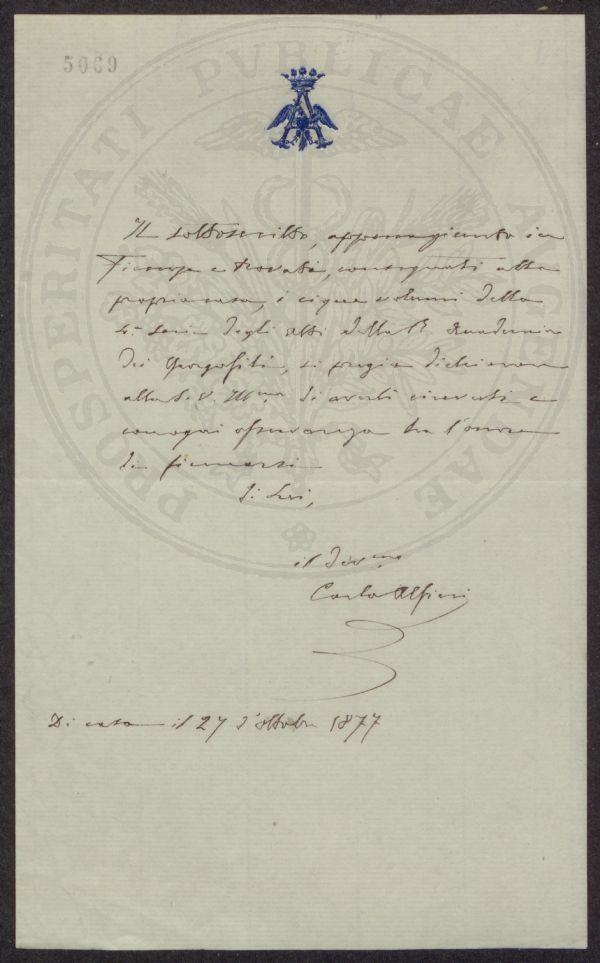 5069
PROSPERITATI PUBLICAE AUGENDAE
Il sottoscritto, appena giunto in
Firenze e trovati, consegnati alla
propria casa, i cinque volumi della
Serie degli atti della R. Accademia
dei Georgofili, si pregia dichiarare
alla S. V. Ill.ma di averli ricevuti e
con ogni osservanza ha l'onore
di firmarsi
di Lei,
il Dev.mo
Carlo Alfieri
Di casa il 27 d'ottobre 1877